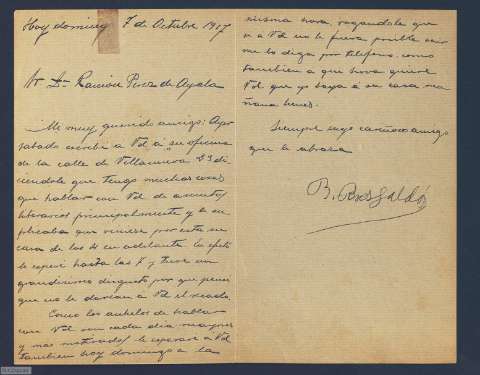 Hoy domingo 7 de Octubre 1917
Sr Dn Ramón Perez de Ayala
Mi muy querido amigo: Ayer
sabado escribi a Vd á su oficina
de la calle de Villanueva di
ciendole que tengo muchas cosas
que hablar con Vd de asuntos
literarios principalmente y le su
plicaba que viniese por esta su
casa de las 4 en adelante. En efecto
le esperé hasta las 7 y tuve un
grandisimo disgusto por que pensé
que no le darian a Vd el recado.
Como los anhelos de hablar
con Vd son cada dia mayores
y mas motivados le esperaré a Vd
tambien hoy domingo a la
misma hora, rogandole que
si a Vd no le fuera posible venir
me lo diga por telefono, como
tambien a que hora quiere
Vd que yo vaya á su casa ma
ñana lunes.
Siempre suyo cariñoso amigo
que le abraza
B. Perez Galdós